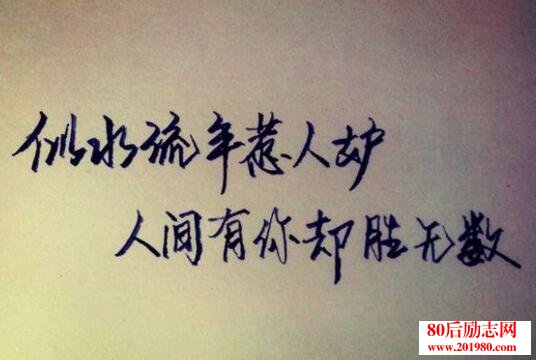 似水流年惹人妒
人间有你却胜无数
80后励志网
www.201980.com